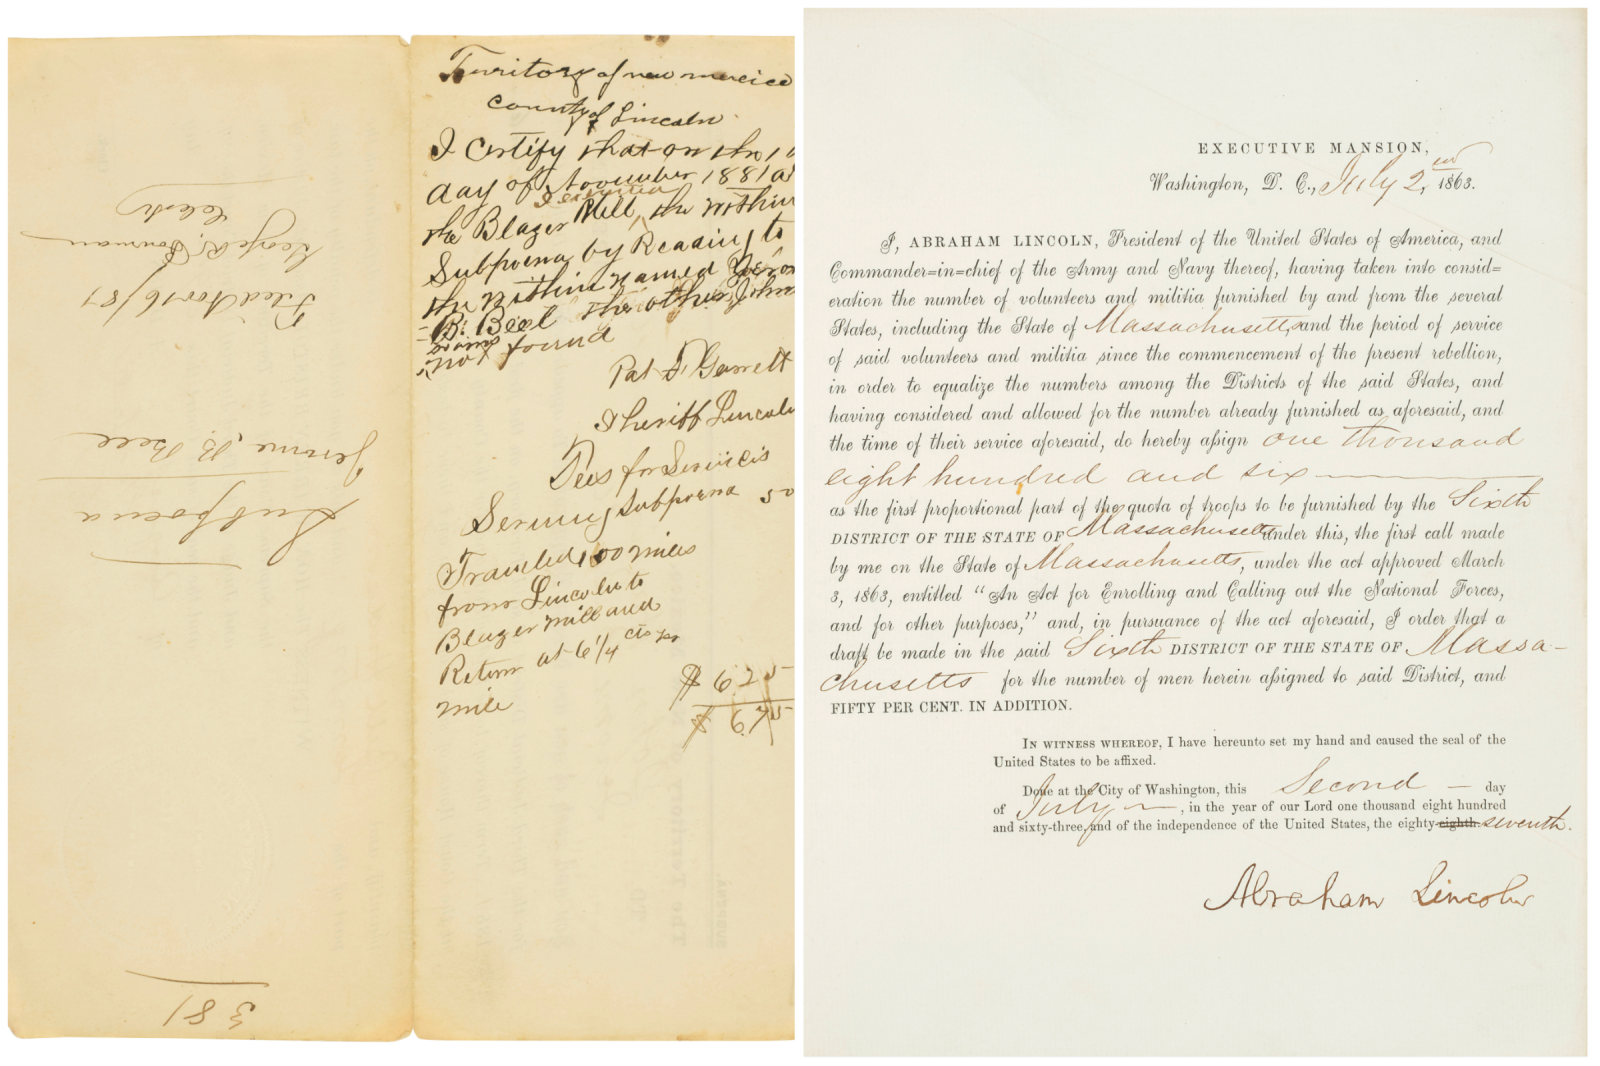 Territory of new mexico
County of Lincoln
I Certify that on the
day of November 1881 at
I executed
the Blazer Mill, the within
Subpoena by Reading to
the within named
B. Bell the other, John
being
not found
Pat F. Garrett
Sheriff Lincoln
Fees for Servicis
Serving Subpoena 50
Traveled 100 miles
from Lincoln to
Blazer mill and
Return at 6 1/4 cts per
mile
$ 6 25
$ 6.75
381
Subpoena
Jerome B. Bell
Filed Nov 16/81
George R. Bowman
Clerk
EXECUTIVE MANSION,
Washington, D. C., July 2,nd 1863.
I, ABRAHAM LINCOLN, President of the United States of America, and
Commander=in=chief of the Army and Navy thereof, having taken into consid=
eration the number of volunteers and militia furnished by and from the several
States, including the State of Massachusetts, and the period of service
of said volunteers and militia since the commencement of the present rebellion,
in order to equalize the numbers among the Districts of the said States, and
having considered and allowed for the number already furnished as aforesaid, and
the time of their service aforesaid, do hereby assign one thousand
eight hundred and six
as the first proportional part of the quota of troops to be furnished by the Sixth
DISTRICT OF THE STATE OF Massachusetts under this, the first call made
by me on the State of Massachusetts, under the act approved March
3, 1863, entitled "An Act for Enrolling and Calling out the National Forces,
and for other purposes," and, in pursuance of the act aforesaid, I order that a
draft be made in the said Sixth DISTRICT OF THE STATE OF Massa-
chusetts for the number of men herein assigned to said District, and
FIFTY PER CENT. IN ADDITION.
IN WITNESS WHEREOF, I have hereunto set my hand and caused the seal of the
United States to be affixed.
Done at the City of Washington, this Second — day
of July —, in the year of our Lord one thousand eight hundred
and sixty-three, and of the independence of the United States, the eighty-eighth seventh.
Abraham Lincoln